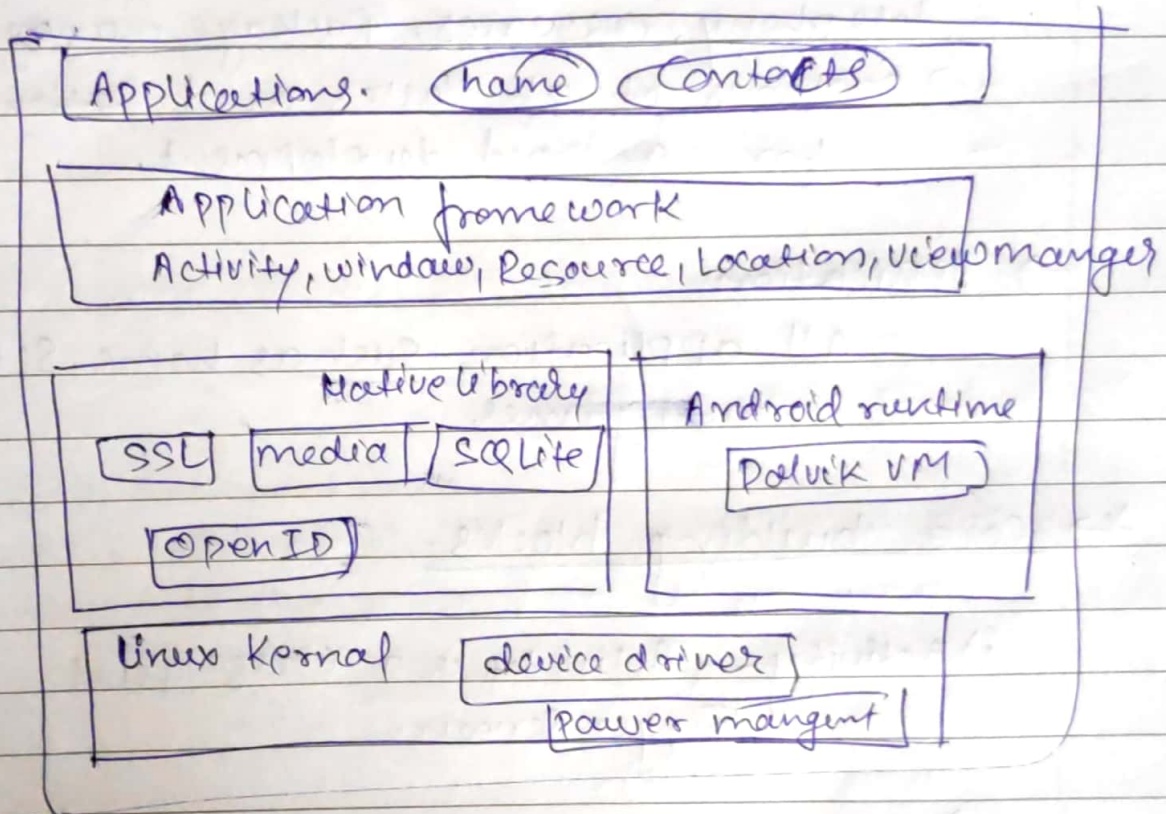 Applications. home Contacts
Application framework
Activity, window, Resource, Location, viewmanger
Native library
SSL media SQLite
OpenID
Android runtime
Dalvik VM
Linux Kernal device driver
power mangemt